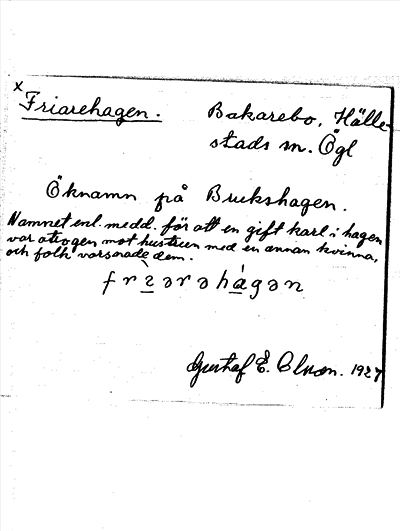 x Friarehagen. Bakarebo, Hälle-
stads sn. Ögl
Öknamn på Brukshagen.
Namnet enl. medd. för att en gift karl i hagen
var otrogen mot hustrun med en annan kvinna,
och folk varsnade dem.
Gustaf E. Olsson. 1927